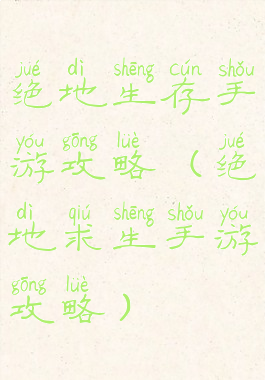 jué dì shēng cún shǒu
绝地生存手
yóu gōng lüè jué
游攻略（绝
dì qiú shēng shǒu yóu
地求生手游
gōng lüè
攻略）